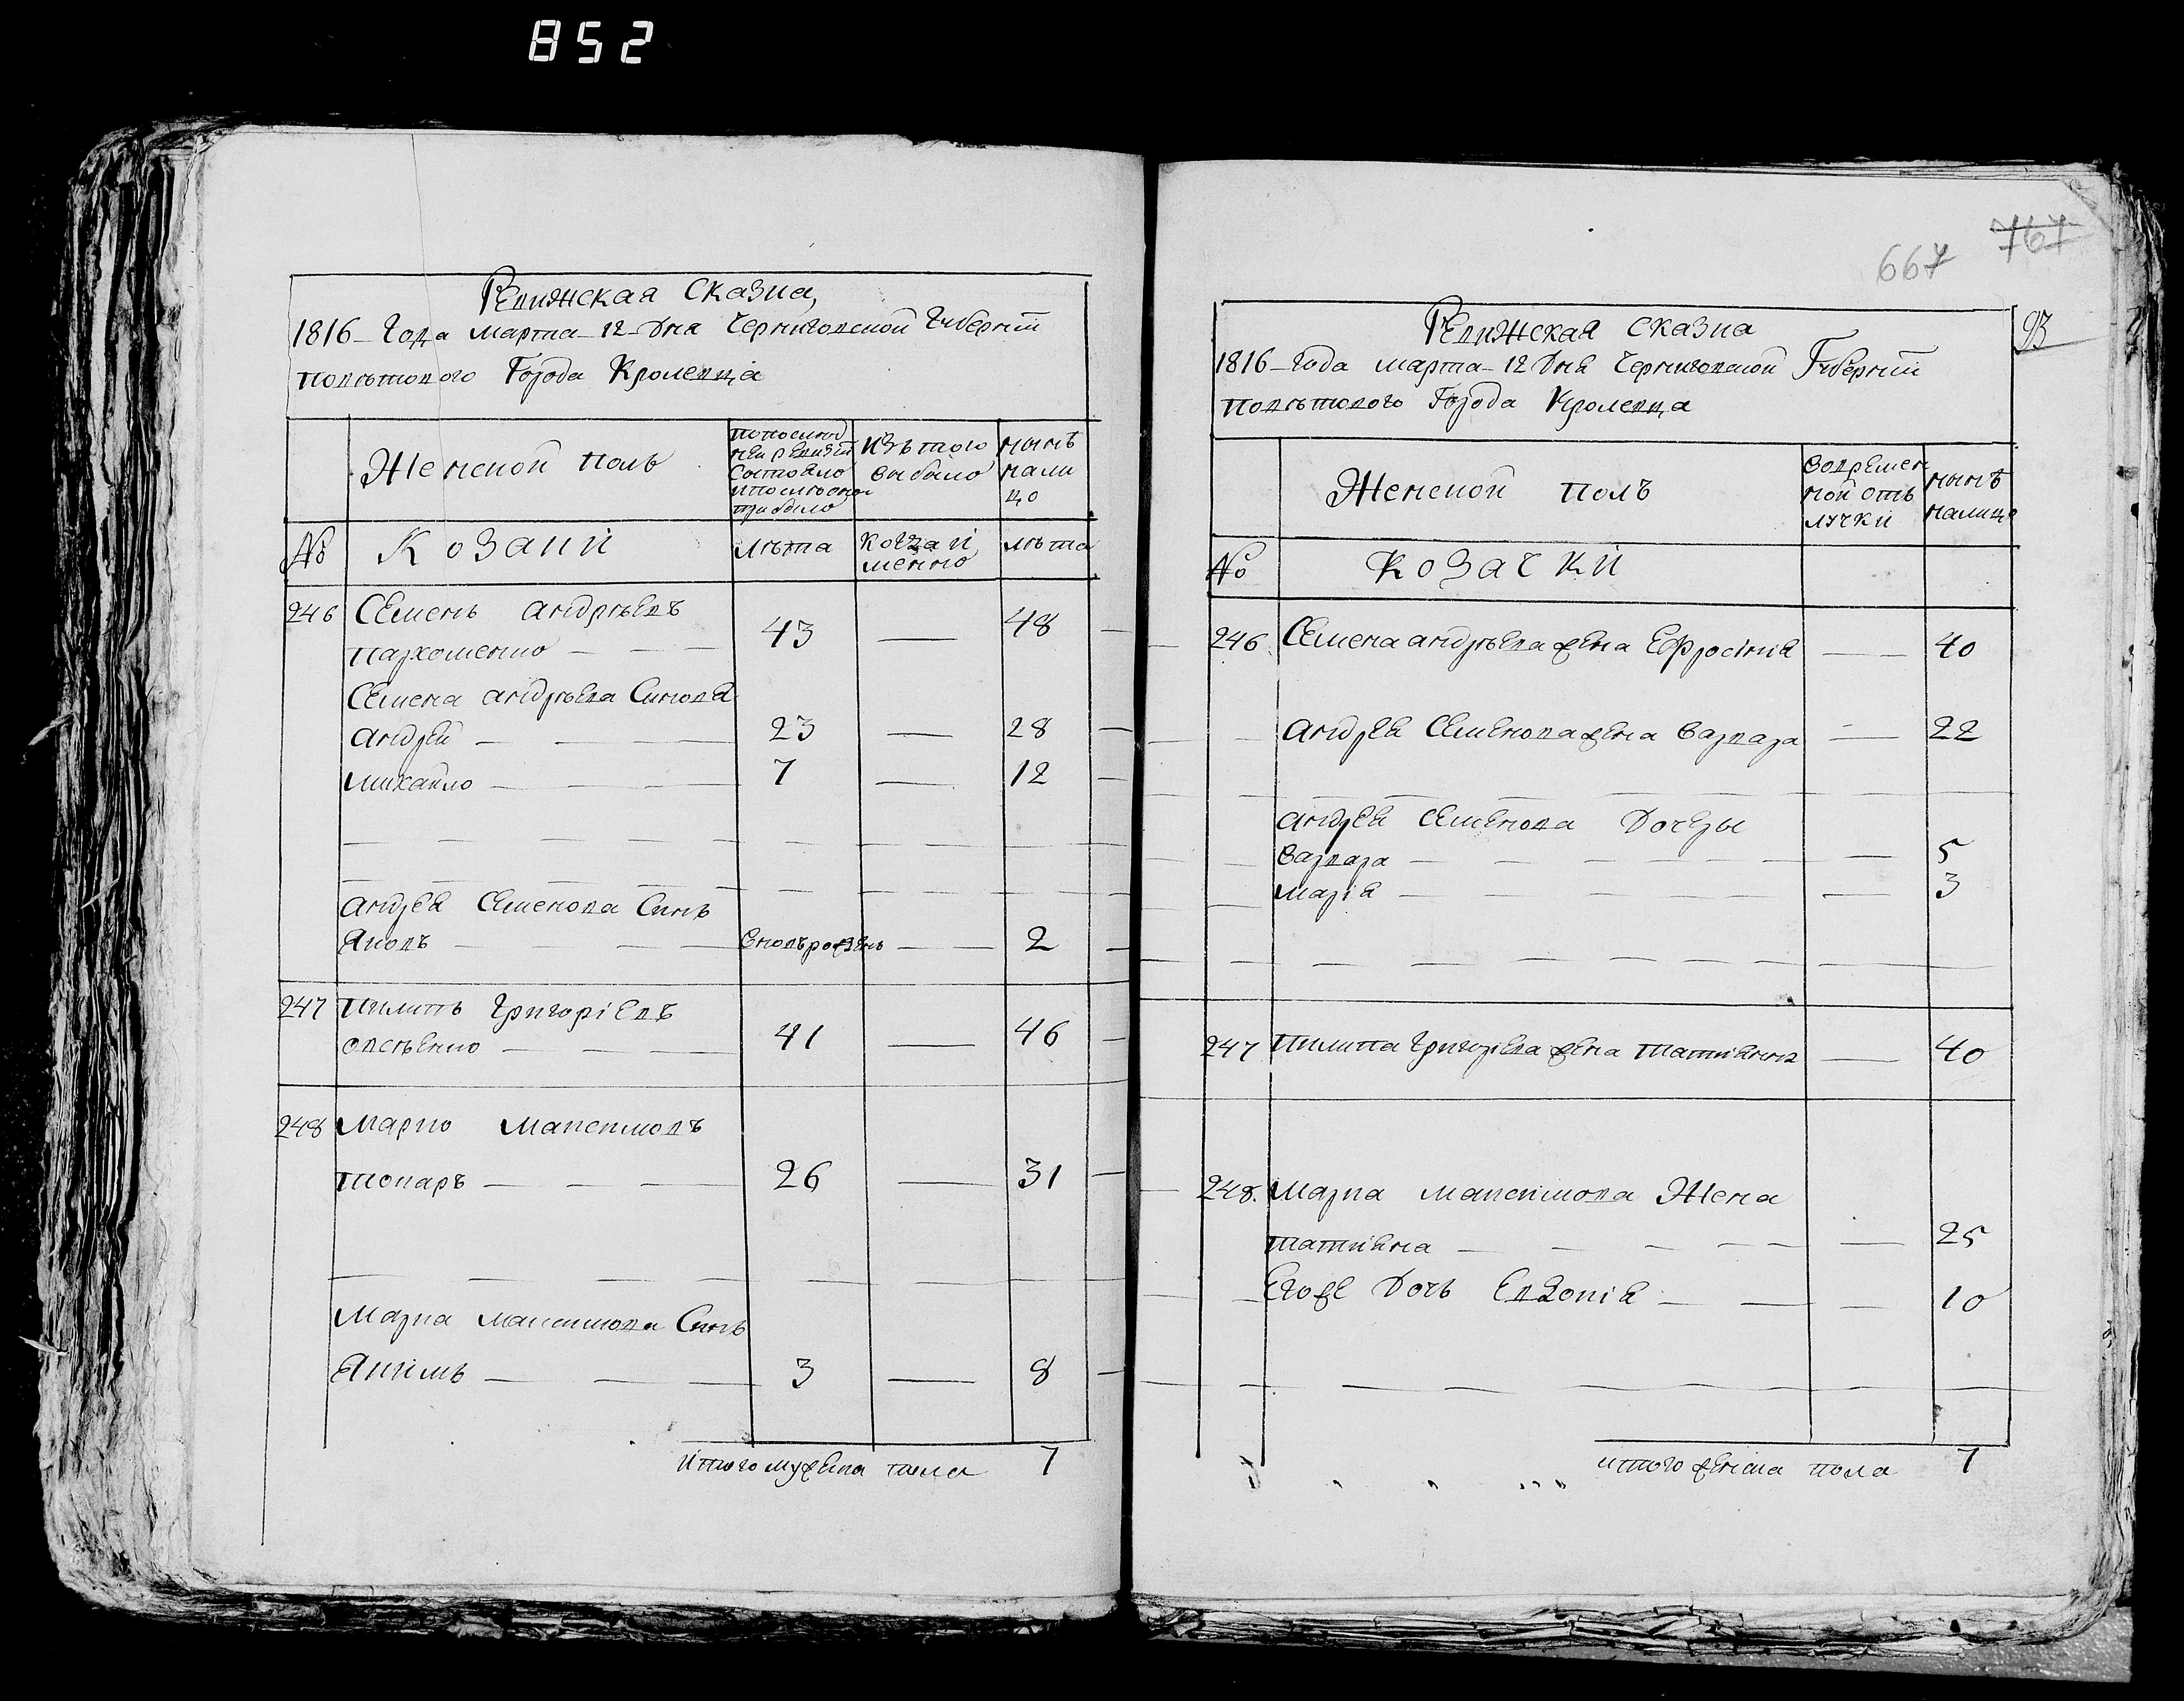 852
Ревижская Сказка,
1816 Года марта 12 Дня Черниговской Губернїи
поветового Города Кролевца
Женской полъ
попослед
ней ревизїи
состояло
ипослеоной
прибыло
изъ того
выбыло
нынѣ
нали
цо
№
Козаки
лѣта
когда и
менно
лѣта
246 Семенъ андрѣевъ
пархоменко 43 48
Семена андрѣева Синовя
андрей 23 28
михайло 7 12
андрея Семенова Синъ
Яковъ вновърожденъ 2
247 пилипъ Григорїевъ
овсѣенко 41 46
248 Марко максимовъ
токаръ 26 31
Марка максимова Синъ
Якимъ 3 8
итого мужеска пола 7
667 767
Ревижская сказка
93
1816 года марта 12 Дня Черниговской Губернїи
поветового Города Кролевца
Женской полъ
вовремен
ной отъ
лучки
нынѣ
налицо
№ Козачки
246 Семена андрѣева жена Ефросїнїя 40
андрея Семенова жена варвара 22
андрея семенова Дочеры
варвара 5
марїя 3
247 пилипа григорїева жена татиянна 40
248. марка максимова Жена
татияна 25
Егоже Дочъ Евдокїя 10
итого женска пола 7